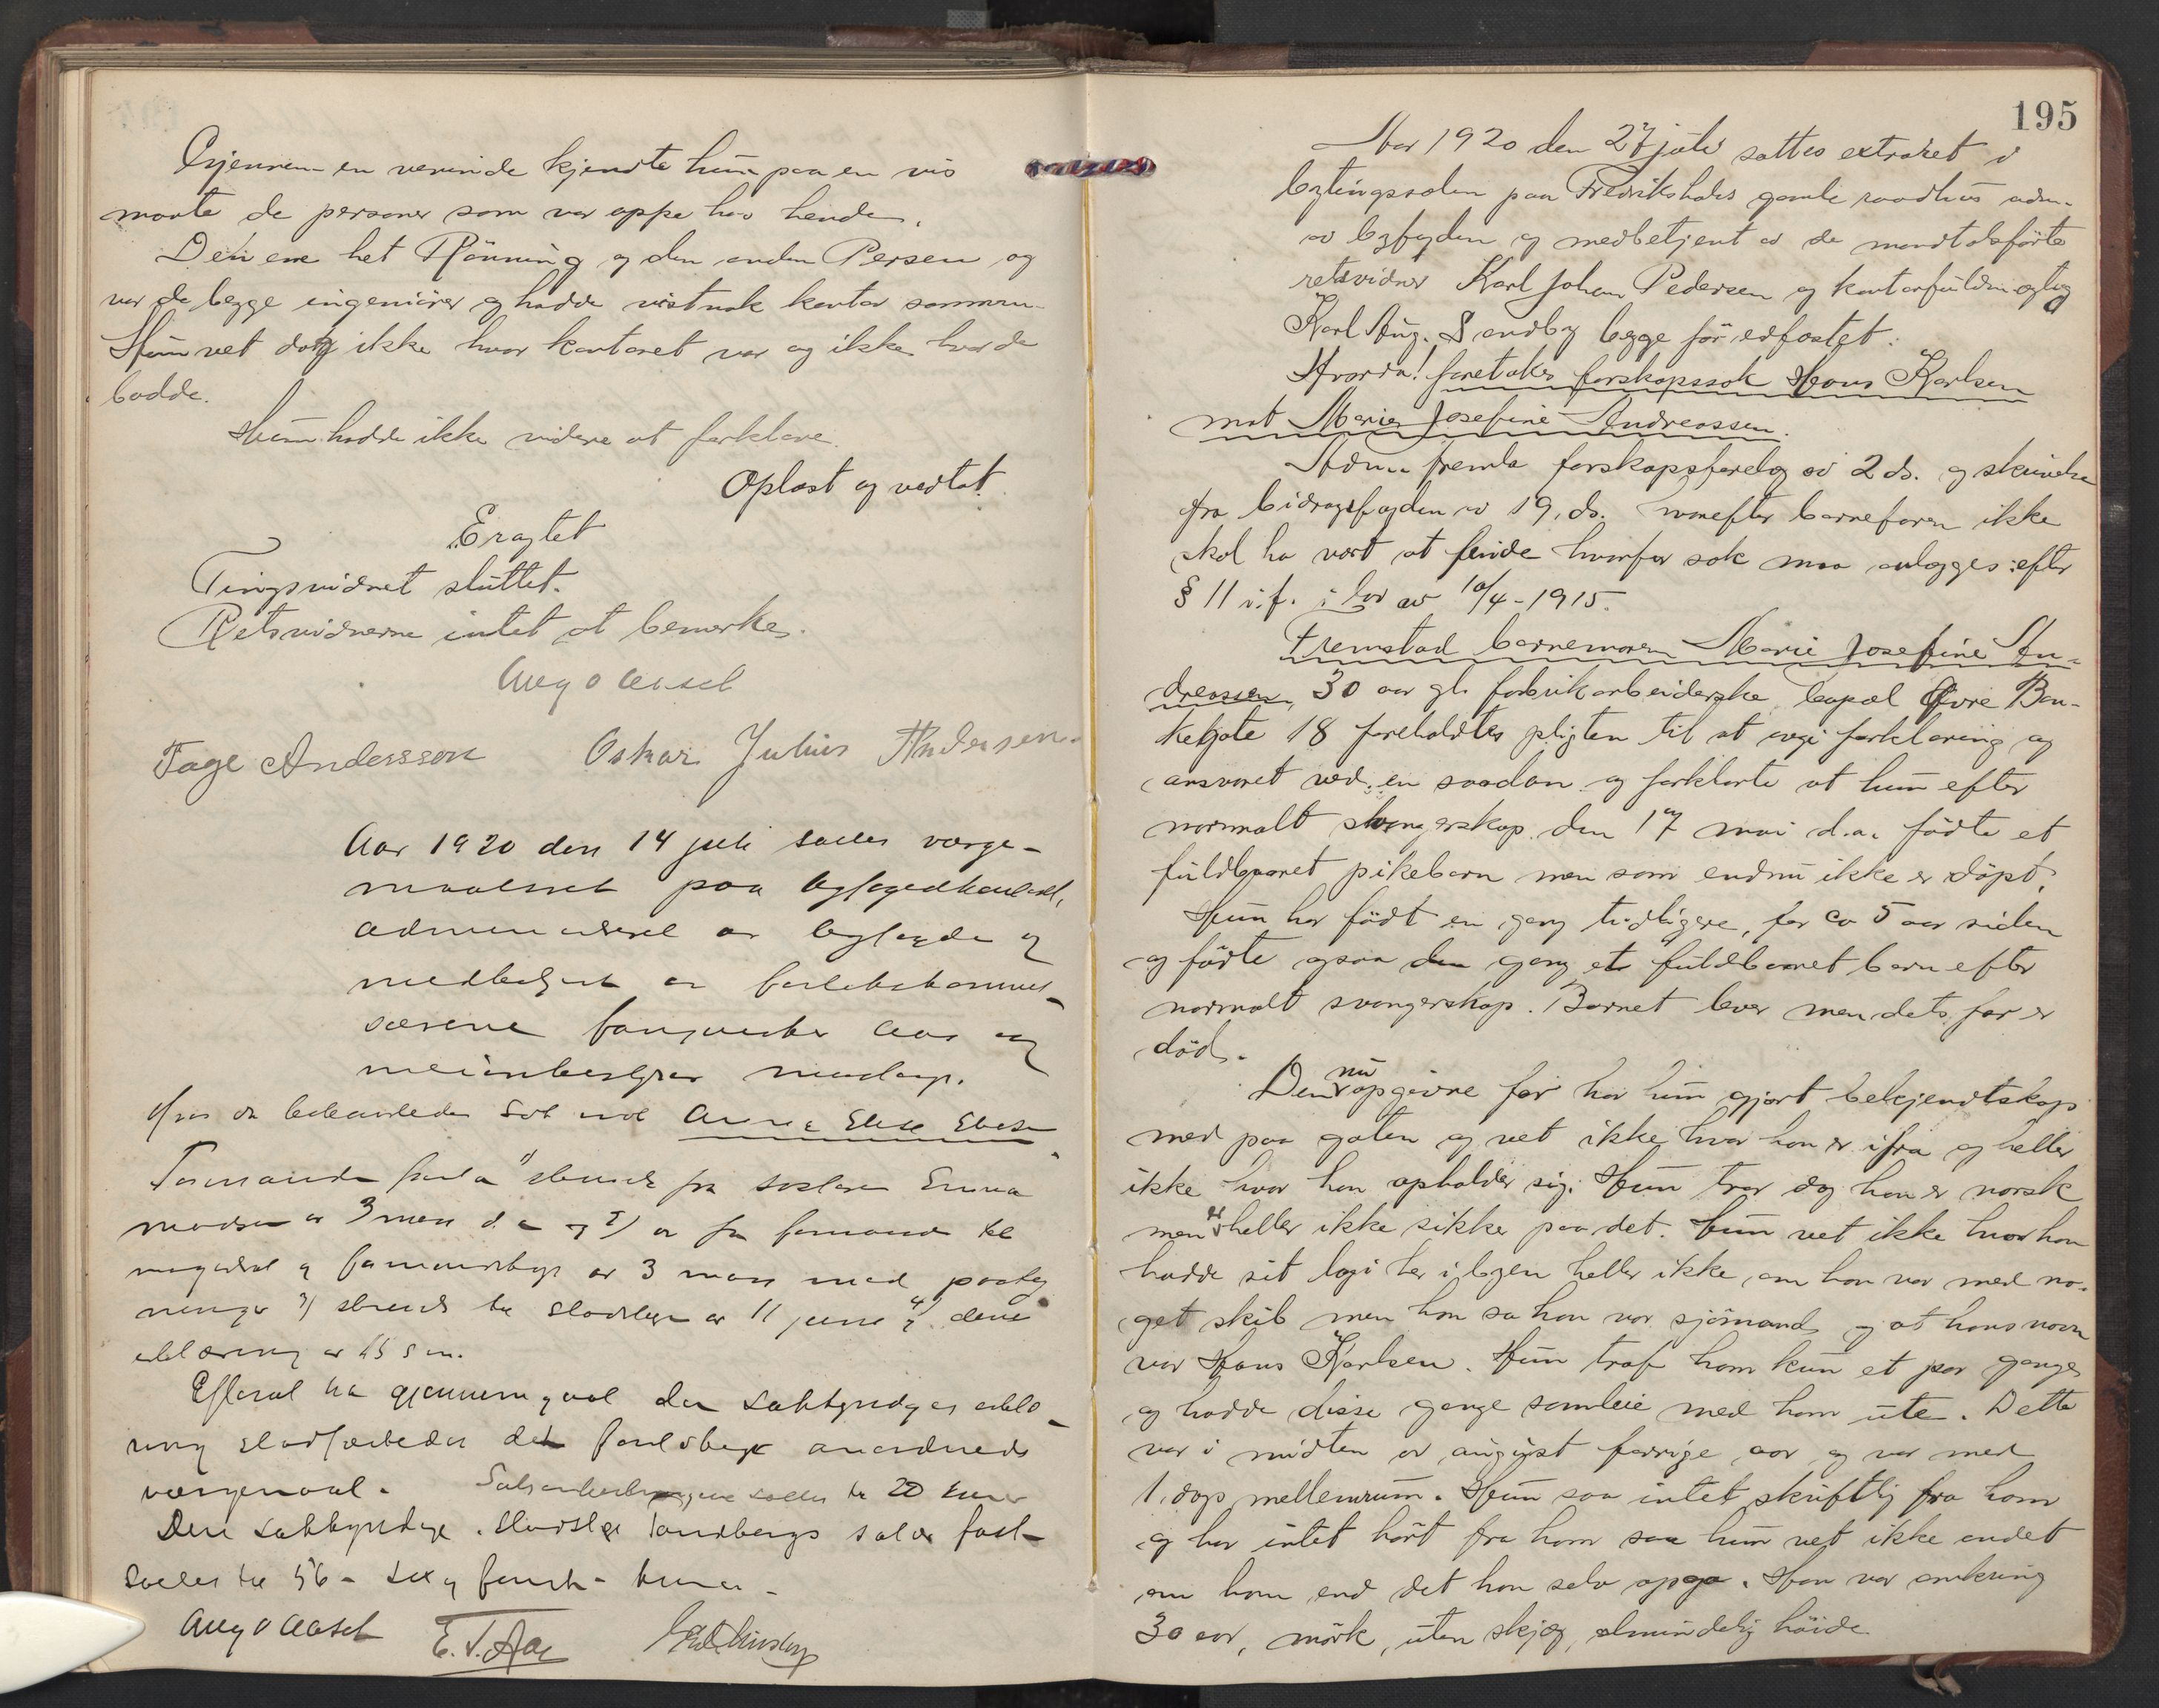 Gjennem en veninde kjendte hun paa en vis
maate de personer som var oppe hos hende.
Den ene het Rønning og den anden Persen og
var de begge ingeniører og hadde vistnok kontor sammen
Hun vet dog ikke hvor kontoret var og ikke hvor de
bodde.
Hun hadde ikke videre at forklare.
Oplæst og vedtat.
Eragtet
Tingsvidnet sluttet.
Retsvidnerne intet at bemerke.
Aug O Aasel
Tage Andersson Oskar Julius Andersen
Aar 1920 den 14 juli sattes verge-
maalsret paa byfogedkontoret,
administreret av byfogden og
medbetjent av
Aas og
meieribestyrer
Hvor da behandledes sak mot Anna Elise
Formanden fremla 1) skrivelse fra Emma
Madsen av 3 mars d.a. og 2) av fra formand til
av 3 mars med paateg
ninger 3) skrivelse fra stadslægen av 11 juni og 4) dennes
erklæring av 15 s.m.
Efterat ha gjennemgaat den sakkyndiges erklæ-
ring det
vergemaal. sættes til 20 kroner
Den sakkyndige, stadslæge Sandbergs salær fast-
sættes til 56 - sex og femti - kroner -
Aug O Aasel E. T. Aas
195
Aar 1920 den 27 juli sattes extraret i
bytingssalen paa Fredrikshalds gamle raadhus adm.
av byfogden og medbetjent av de mandtalsførte
retsvidner Karl Johan Pedersen og kontorfuldmægtig
Karl Aug. Sandbæg begge før edfæstet.
Hvorda! foretokes farskapssak Hans Karlsen
mot Marie Josefine Andreassen.
Adm. fremla farskapsforelæg av 2 ds. og skrivelse
fra bidragsfogden av 19. ds. hvorefter barnefaren ikke
skal ha vært at finde hvorfor sak maa anlægges efter
§ 11 i.f. i lov av 10/4-1915.
Fremstod barnemoren Marie Josefine An-
dreassen, 30 aar gl. fabrikarbeiderske, bopæl Øvre Ban-
kegate 18 foreholdtes pligten til at avgi forklaring og
ansvaret ved en saadan og forklarte at hun efter
normalt svangerskap den 17 mai d.a. fødte et
fuldbaaret pikebarn men som endnu ikke er døpt.
Hun har født en gang tidligere, for ca 5 aar siden
og fødte ogsaa den gang et fuldbaaret barn efter
normalt svangerskap. Barnet lever men dets far er
død.
Den nu opgivne far har hun gjort bekjendtskap
med paa gaten og vet ikke hvor han er ifra og heller
ikke hvor han opholder sig. Hun tror dog han er norsk
men er heller ikke sikker paa det. Hun vet ikke hvor han
hadde sit logi her i byen heller ikke, om han var med no-
get skib men han sa han var sjømand og at hans navn
var Hans Karlsen. Hun traf ham kun et par ganger
og hadde disse gange samleie med ham ute. Dette
var i midten av august forrige aar og var med
1. dags mellemrum. Hun saa intet skriftlig fra ham
og har intet hørt fra ham saa hun vet ikke andet
om ham end det han selv opga. Han var omkring
30 aar, mørk, uten skjæg, almindelig høide